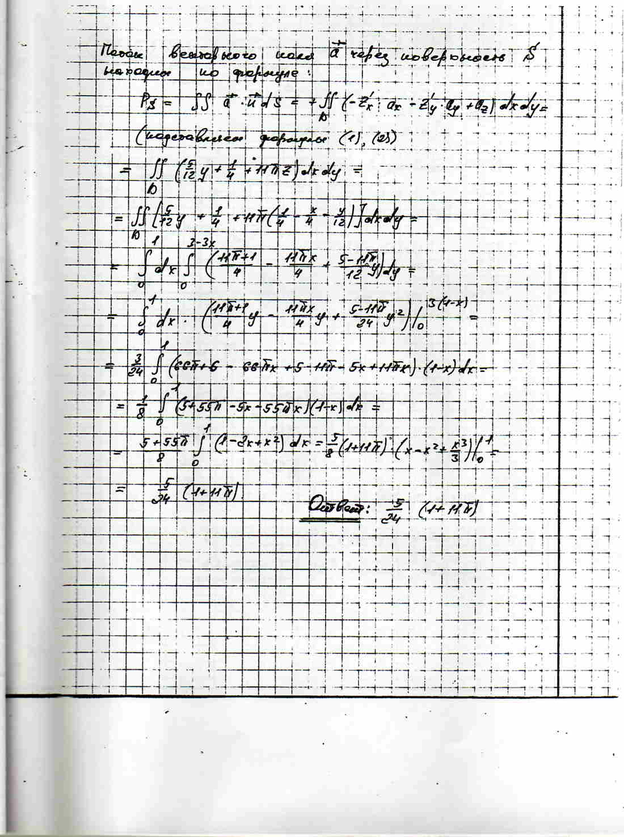 Поток векторного поля a⃗ через поверхность S
находим по формуле:
P_S = ∬ a⃗ · n⃗ dS = +∬_D (-z'_x · a_x - z'_y · a_y + a_z) dxdy =
(подставляем формулы (1), (2))
= ∬_D (5/12 y + 1/4 + 11πz) dxdy =
= ∬_D [5/12 y + 1/4 + 11π(1/4 - x/4 - y/12)] dxdy =
= ∫_0^1 dx ∫_0^{3-3x} ((11π+1)/4 - 11πx/4 + (5-11π)/12 y) dy =
= ∫_0^1 dx · ((11π+1)/4 y - 11πx/4 y + (5-11π)/24 y²) |_0^{3(1-x)} =
= 3/24 ∫_0^1 (66π+6 - 66πx + 5 - 11π - 5x + 11πx) · (1-x) dx =
= 1/8 ∫_0^1 (5+55π - 5x - 55πx)(1-x) dx =
= (5+55π)/8 ∫_0^1 (1-2x+x²) dx = 5/8 (1+11π) · (x - x² + x³/3) |_0^1 =
= 5/24 (1+11π).
Ответ: 5/24 (1+11π)